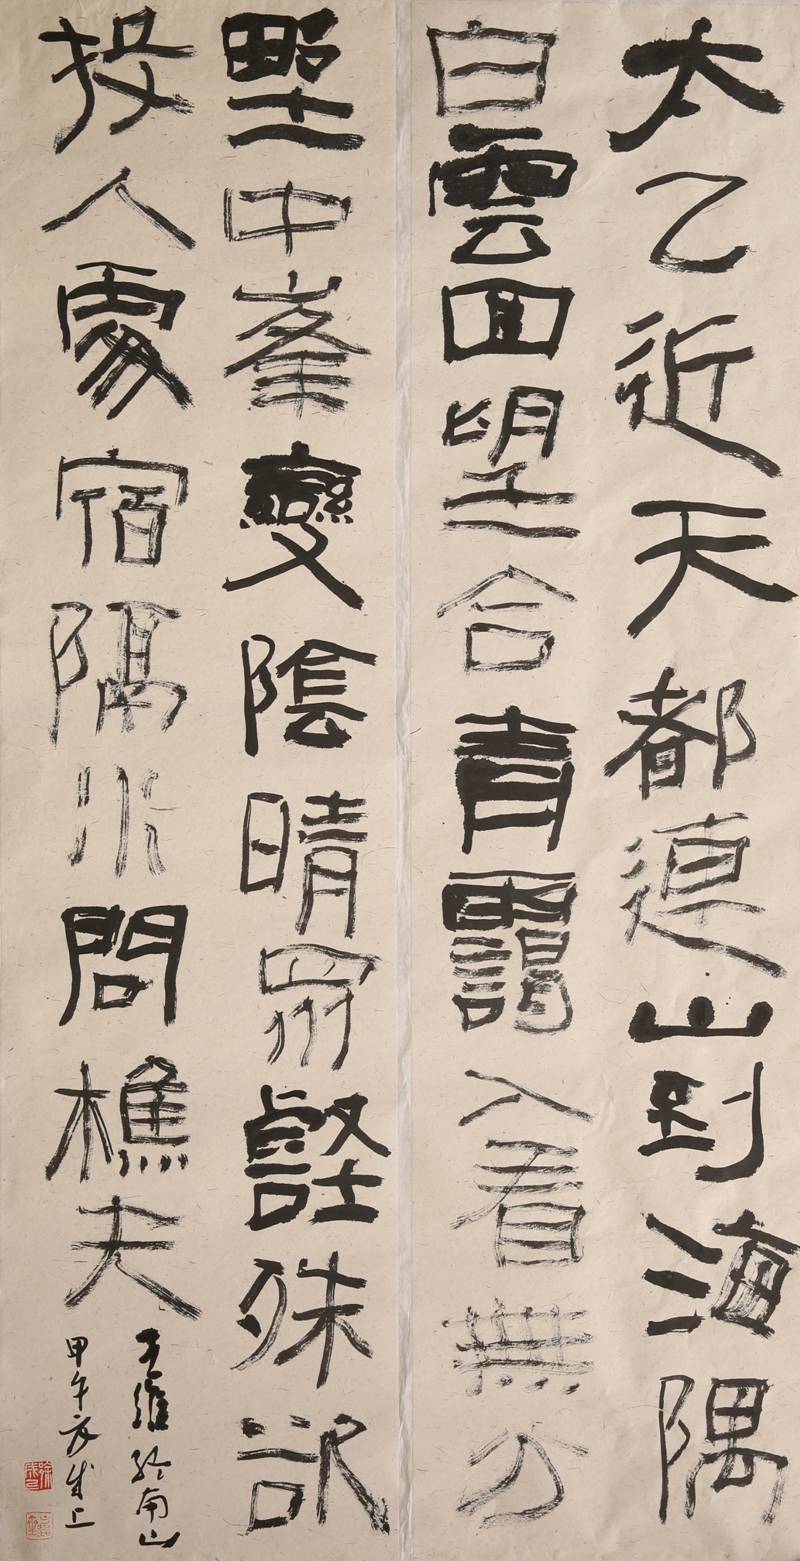 太乙近天都連山到海隅
白雲回望合青靄入看無分
野中峯變陰晴眾壑殊欲
投人處宿隔水問樵夫
王維終南山
甲午